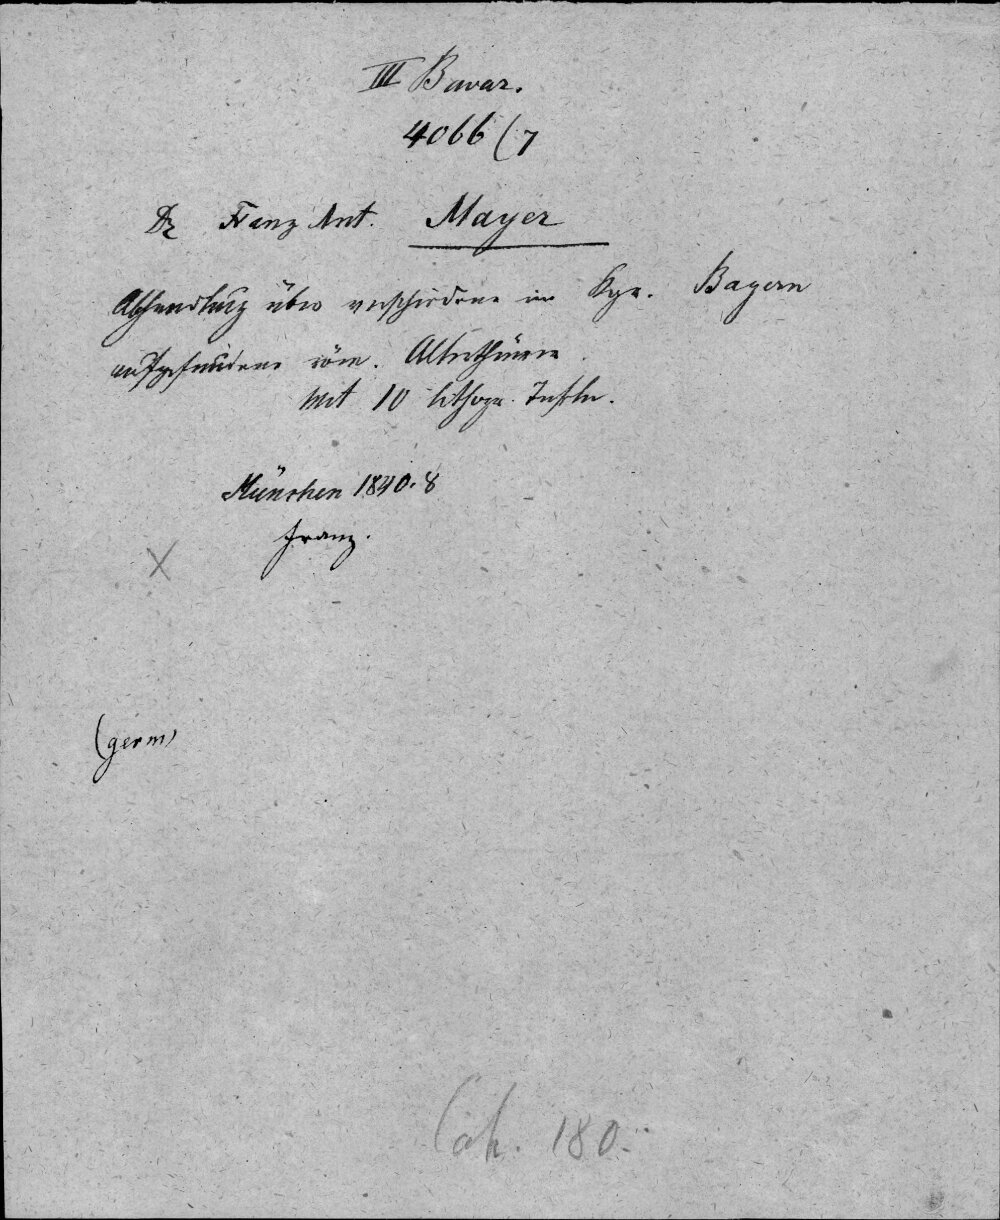 III Bavar.
4066 (7
Dr Franz Ant. Mayer
Abhandlung über verschiedene im Kgr. Bayern
aufgefundene röm. Alterthümer
Mit 10 lithogr. Tafeln.
München 1840. 8
Franz.
X
(germ)
Cah. 180.